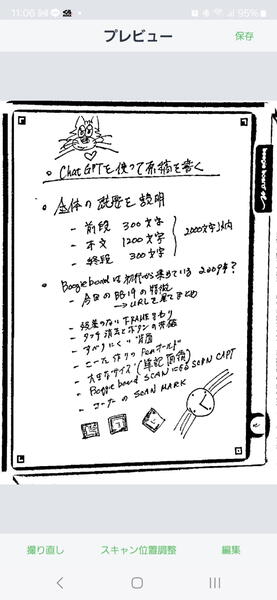 11:06
95%
プレビュー
保存
boogie board
○ ChatGPTを使って原稿を書く
○ 全体の概要を説明
- 前段 300文字
- 本文 1200文字
- 終段 300文字
2000文字以内
○ Boogieboardは初代から来ている 2009年?
- 今日のBB19の特徴
→URLを見てまとめ
- 段差のないFRAMEまわり
- タッチ消去とボタンの
- すべりにくい背面
- Penホールド
- 大きなサイズ
- Boogie board SCAN SCAN CAPT
- コーナーのSCAN MARK
撮り直し
スキャン位置調整
編集